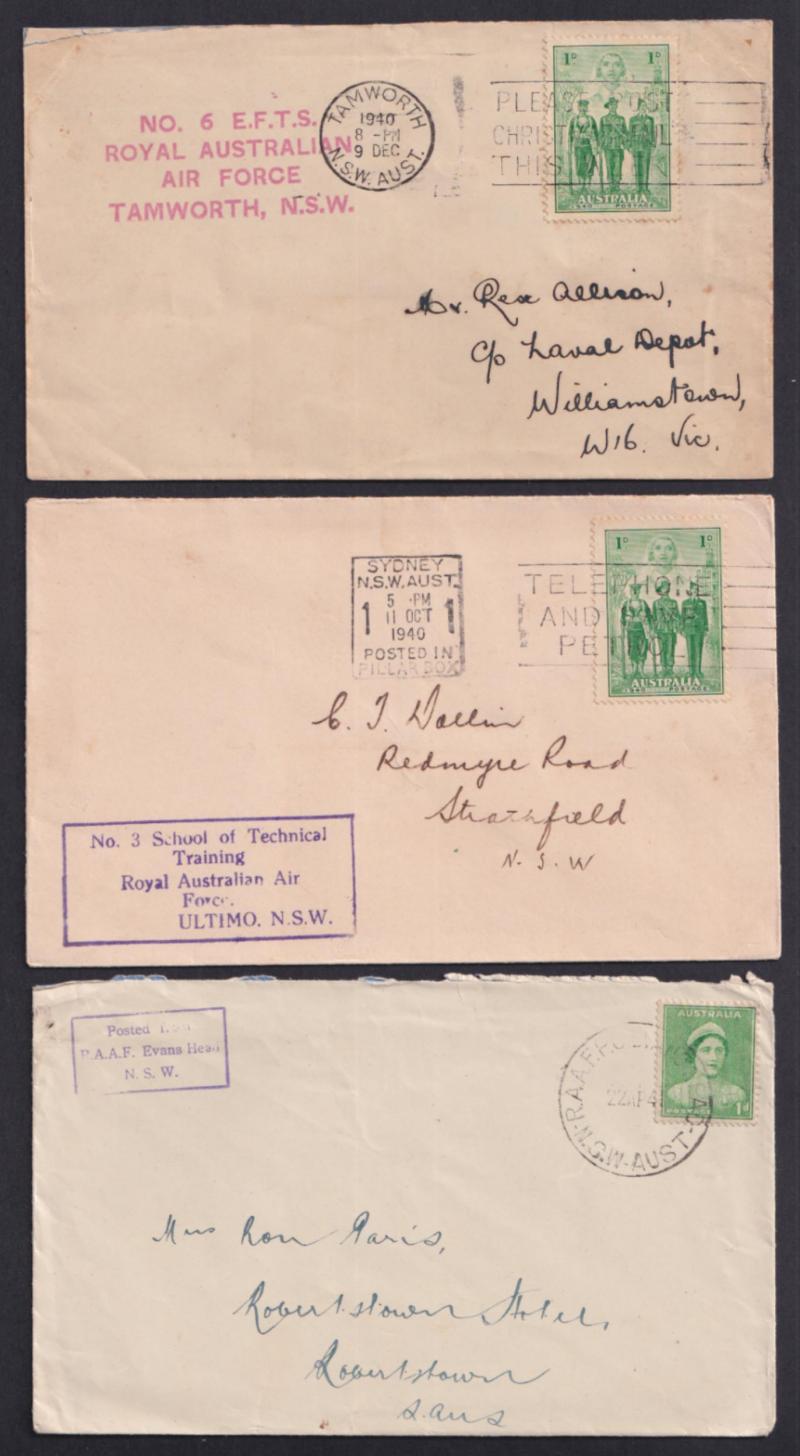 NO. 6 E.F.T.S.
ROYAL AUSTRALIAN
AIR FORCE
TAMWORTH, N.S.W.
TAMWORTH
1940
8 -PM
9 DEC
N.S.W. AUST.
PLEASE POST
THIS
1D 1D
AUSTRALIA
POSTAGE
Mr. Rex Allison,
C/o Naval Depot,
Williamstown,
W16. Vic.
SYDNEY
N.S.W. AUST.
1 5 PM 1
11 OCT
1940
POSTED IN
PILLAR BOX
TELEPHONE
AND
PETROL
1D 1D
AUSTRALIA
POSTAGE
C. J. Dallin
Redmyre Road
Strathfield
N. S. W
No. 3 School of Technical
Training
Royal Australian Air
Force.
ULTIMO, N.S.W.
Posted
R.A.A.F. Evans Head
N. S. W.
R.A.A.F.P.O.
22AP4
N.S.W-AUST
AUSTRALIA
POSTAGE 1d
Ron Paris,
Robertstown Hotel,
Robertstown
S. Aus